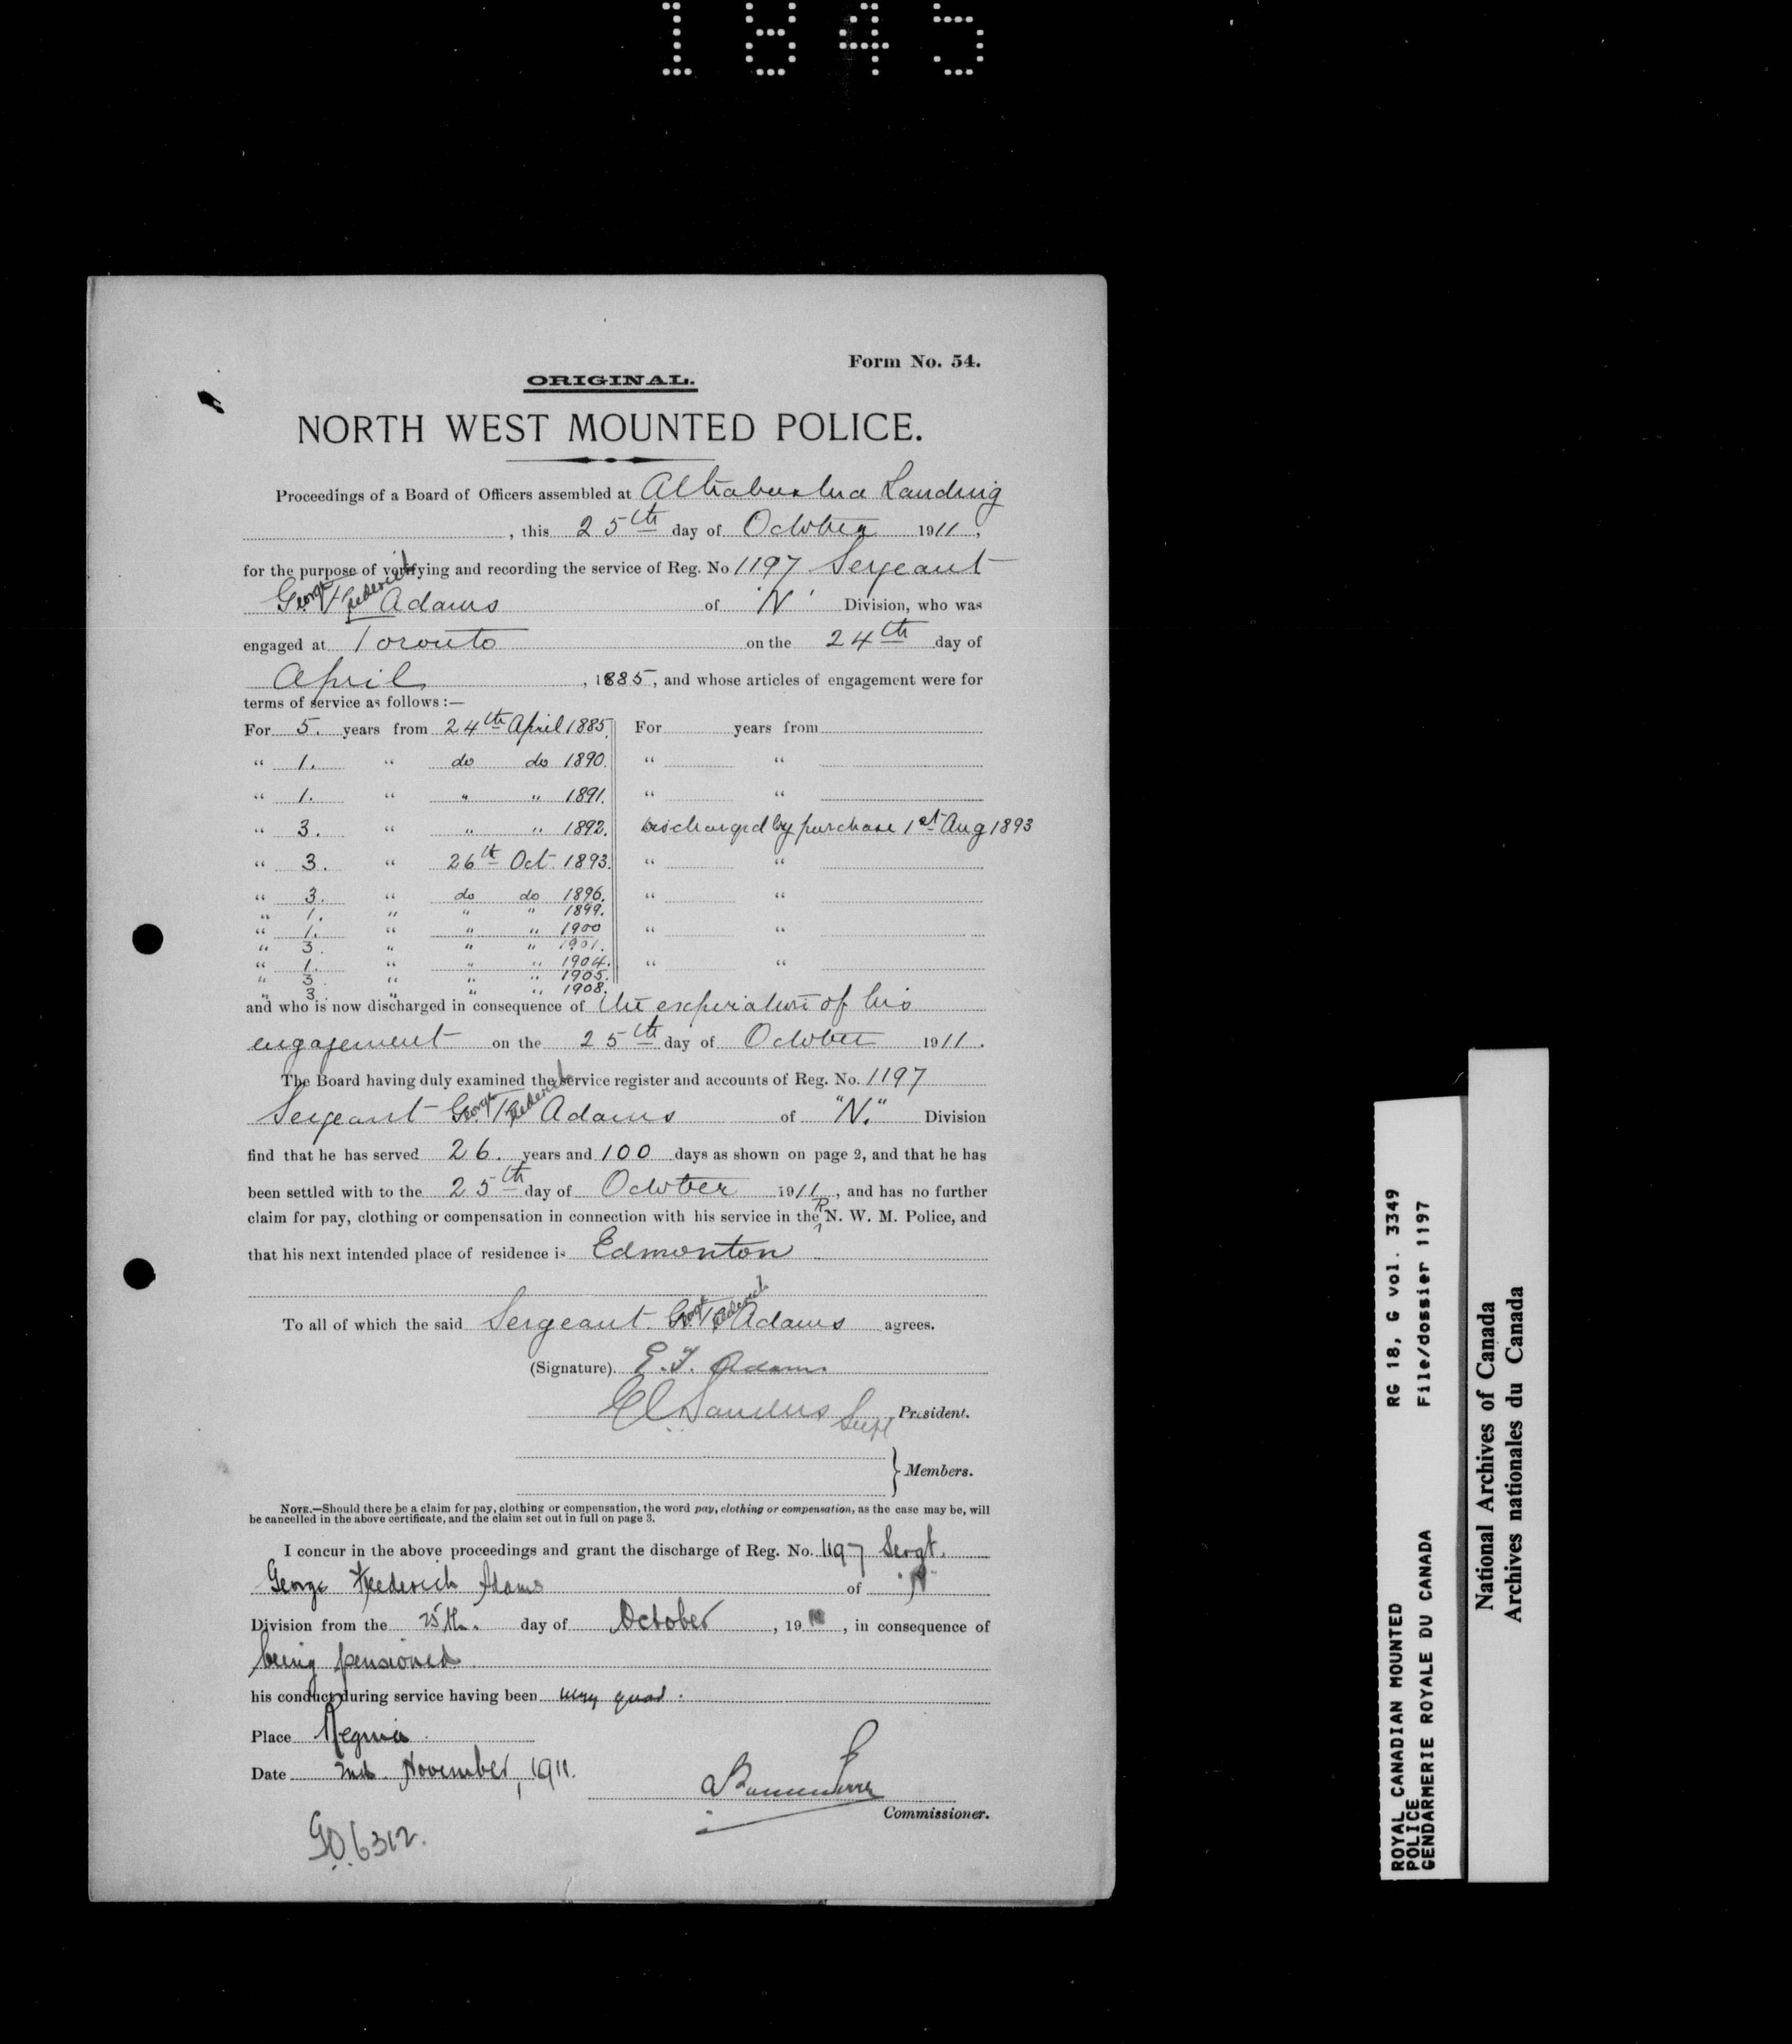 1845
Form No. 54.
ORIGINAL.
NORTH WEST MOUNTED POLICE.
Proceedings of a Board of Officers assembled at Athabaska Landing
, this 25th day of October 1911,
for the purpose of verifying and recording the service of Reg. No 1197 Sergeant
George Frederick Adams of "N" Division, who was
engaged at Toronto on the 24th day of
April, 1885, and whose articles of engagement were for
terms of service as follows:—
For 5. years from 24th April 1885. For years from
" 1. " do do 1890. " "
" 1. " " " 1891. " "
" 3. " " " 1892. discharged by purchase 1st Aug 1893
" 3. " 26th Oct. 1893. " "
" 3. " do do 1896. " "
" 1. " " " 1899.
" 1. " " " 1900 " "
" 3. " " " 1901.
" 1. " " " 1904. " "
" 3 " " " 1905.
" 3. " " " 1908.
and who is now discharged in consequence of the expiration of his
engagement on the 25th day of October 1911.
The Board having duly examined the service register and accounts of Reg. No. 1197
Sergeant George Frederick Adams of "N." Division
find that he has served 26. years and 100 days as shown on page 2, and that he has
been settled with to the 25th day of October 1911, and has no further
claim for pay, clothing or compensation in connection with his service in the R N. W. M. Police, and
that his next intended place of residence is Edmonton
To all of which the said Sergeant George Frederick Adams agrees.
(Signature). G. F. Adams.
Sanders Supt President.
Members.
NOTE.—Should there be a claim for pay, clothing or compensation, the word pay, clothing or compensation, as the case may be, will
be cancelled in the above certificate, and the claim set out in full on page 3.
I concur in the above proceedings and grant the discharge of Reg. No. 1197 Sergt.
George Frederick Adams of "N"
Division from the 25th. day of October, 19 , in consequence of
being pensioned
his conduct during service having been very good.
Place Regina
Date 2nd November, 1911.
Commissioner.
G.O. 6312.
ROYAL CANADIAN MOUNTED RG 18, G vol. 3349
POLICE
GENDARMERIE ROYALE DU CANADA File/dossier 1197
National Archives of Canada
Archives nationales du Canada